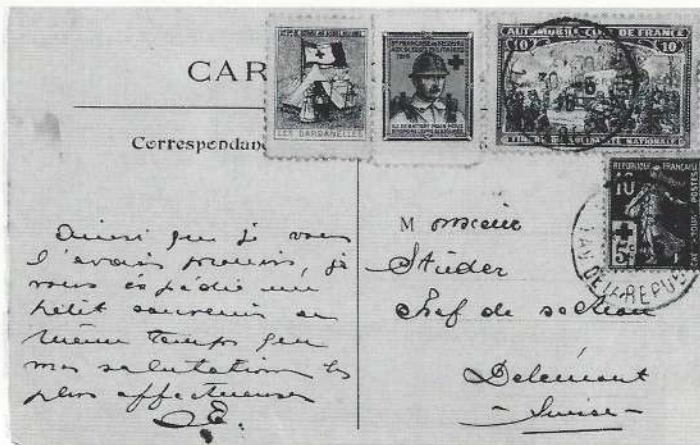 CAR
Correspondan
LES DARDANELLES
1916
AUTOMOBILE CLUB DE FRANCE
10 10
30 -6
TIMBRE DE SOLIDARITE NATIONALE
REPUBLIQUE FRANÇAISE
10
+
5c
POSTES
DE LA REPUB
Ainsi que je vous
l'avais promis, je
vous expédie un
petit souvenir en
même temps que
mes salutations les
plus affectueuses
E.
Monsieur
Stüder
Chef de section
Delémont
- Suisse -